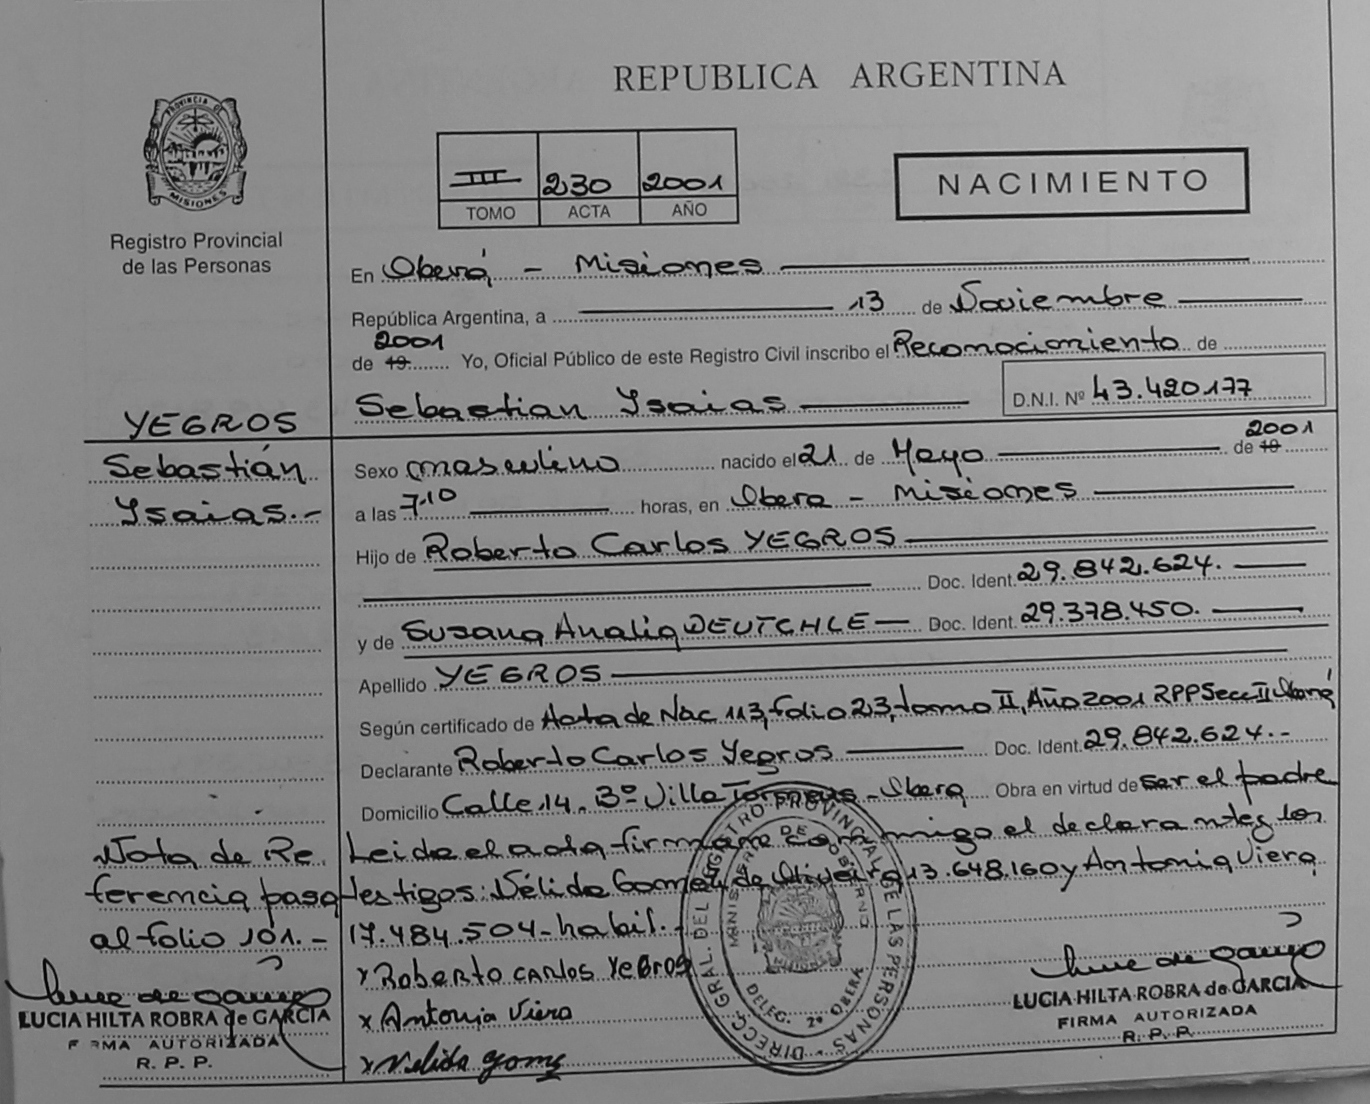 REPUBLICA ARGENTINA
PROVINCIA DE
MISIONES
Registro Provincial
de las Personas
III 230 2001
TOMO ACTA AÑO
NACIMIENTO
En Oberá - Misiones
República Argentina, a 13 de Noviembre
2001
de 19 Yo, Oficial Público de este Registro Civil inscribo el Reconocimiento de
Sebastian Ysaias D.N.I. Nº 43.420.177
YEGROS
Sebastián
Ysaias.-
Sexo masculino nacido el 21 de Mayo de 19 2001
a las 7.10 horas, en Obera - Misiones
Hijo de Roberto Carlos YEGROS
Doc. Ident. 29.842.624.
y de Susana Analia DEUTCHLE Doc. Ident. 29.378.450.
Apellido YEGROS
Según certificado de Acta de Nac 113, folio 23, tomo II, Año 2001 RPP Secc II Oberá
Declarante Roberto Carlos Yegros Doc. Ident. 29.842.624.-
Domicilio Calle 14. Bº Villa - Obera Obra en virtud de ser el padre
Leida el acta firman conmigo el declarante y los
testigos: Nélida Gomez de Oliveira 13.648.160 y Antonia Viera
17.484.504 - habil.-
Nota de Re
ferencia pasa
al folio 101.-
x Roberto CARLOS YEGROS
x Antonia Viera
x Nelida Gomez
DIRECC. GRAL. DEL REGISTRO PROVINCIAL DE LAS PERSONAS
MINISTERIO DE GOBIERNO
DELEG. 2º OBERA
LUCIA HILTA ROBRA de GARCIA
FIRMA AUTORIZADA
R. P. P.
LUCIA HILTA ROBRA de GARCIA
FIRMA AUTORIZADA
R. P. P.